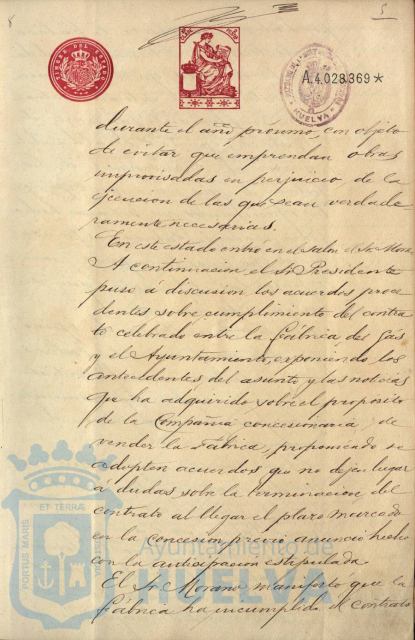 5
TIMBRE DEL ESTADO
A.4.028.369*
HUELVA
durante el año próximo, con objeto
de evitar que emprendan obras
improvisadas en perjuicio de la
ejecucion de las que sean verdade
ramente necesarias.
En este estado entró en el Salon el Sr. Mora
A continuacion el Sr. Presidente
puso á discusion los acuerdos proce
dentes sobre cumplimiento del contra
to celebrado entre la Fábrica del Gás
y el Ayuntamiento, exponiendo los
antecedentes del asunto y las noticias
que ha adquirido sobre el propósito
de la Compañia concesionaria, de
vender la Fábrica, proponiendo se
adopten acuerdos que no dejen lugar
á dudas sobre la terminacion del
contrato al llegar el plazo marcado
en la concesion previo anuncio hecho
con la anticipacion estipulada.
El Sr. Morano manifestó que la
Fábrica ha incumplido el contrato
PORTUS MARIS ET TERRAE
Ayuntamiento de
HUELVA